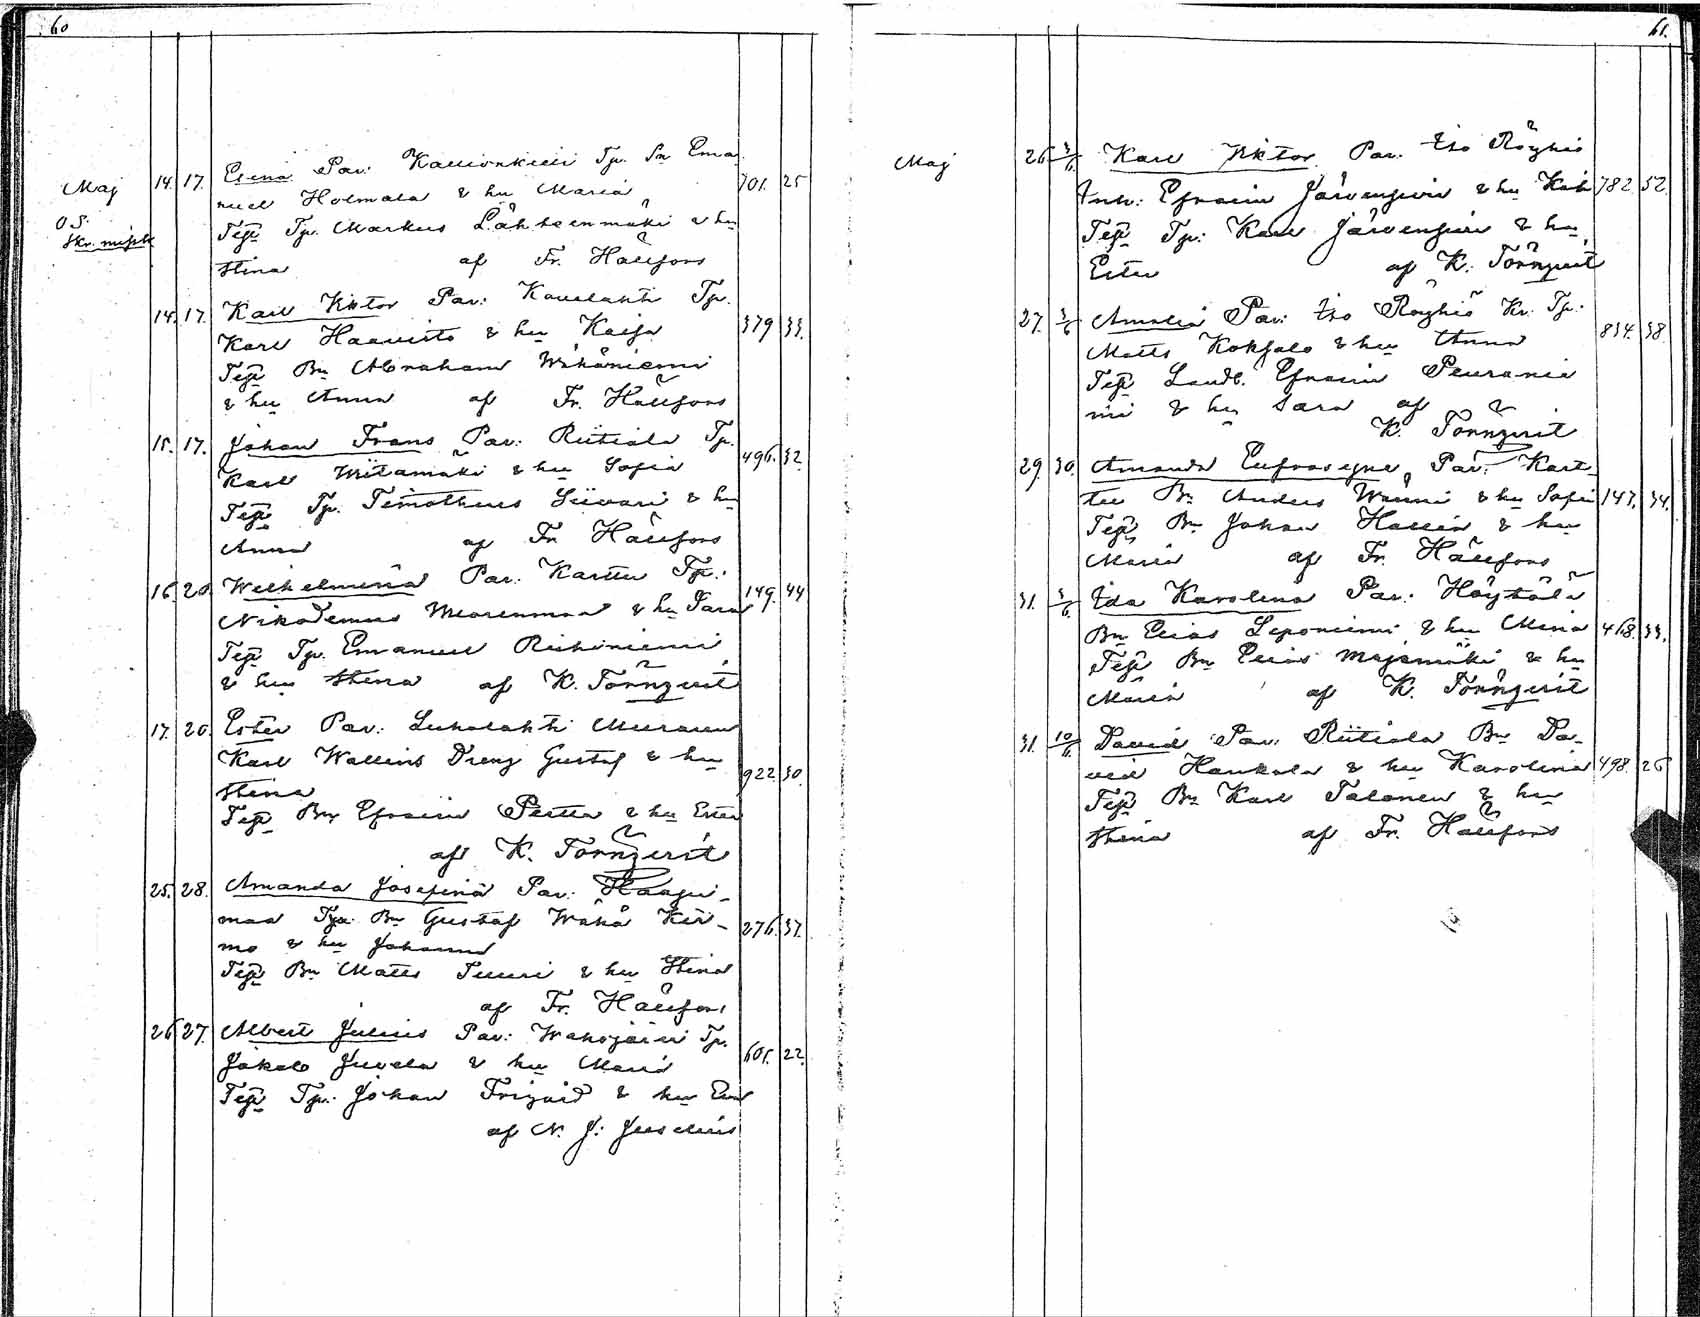 60
Maj 14. 17. Elina Par. Kallionkieli Tp. Sn Ema
nuel Holmala & hu Maria 701. 25
OS.
Skr. miste
Test Tp. Markus Lähteenmäki & hu
Stina af Fr. Hällfors
14. 17. Karl Viktor Par: Kauvalahti Tp.
Karl Haavisto & hu Kaisa 379 33.
Test Bn Abraham Wähäniemi
& hu Anna af Fr. Hällfors
15. 17. Johan Frans Par: Riitiala Tp.
Karl Wiitamäki & hu Sofia 496. 32.
Test Tp. Timotheus Siivari & hu
Anna af Fr. Hällfors
16. 20. Wilhelmina Par: Karttu Tp.
Nikodemus Morenmaa & hu Sara 149. 44
Test Tp. Emanuel Ristiniemi
& hu Stina af K. Törnqvist
17. 20. Ester Par: Luhalahti Muraren
Karl Wallins Dreng Gustaf & hu
Stina 922 30.
Test Bn Efraim Perttu & hu Ester
af K. Törnqvist
25. 28. Amanda Josefina Par: Haapi-
maa Bn Gustaf Wähä Ker-
mo & hu Johanna 276. 37.
Test Bn Matts Tuuri & hu Stina
af Fr. Hällfors
26 27. Albert Julius Par: Wahojärvi Tp.
Jakob Juvela & hu Maria 601. 22.
Test Tp. Johan Frigård & hu Eva
af N. J. Juselius
61.
Maj 26 3/6 Karl Viktor Par. Iso Röyhiö
Inh: Efraim Järvensivu & hu 782 52.
Test Tp: Karl Järvensivu & hu
Ester af K. Törnqvist
27. 3/6 Amalia Par: Iso Röyhiö Kr. Tp.
Matts Koksalo & hu Anna 834. 38.
Test Landb. Efraim Peuranie
mi & hu Sara af
K. Törnqvist
29. 30. Amanda Eufrosyne Par: Kart-
tu Bn Anders Wänni & hu Sofia 147. 34.
Test Bn Johan Hallin & hu
Maria af Fr. Hällfors
31. 3/6 Ida Karolina Par: Höytölä
Bn Elias Leponiemi & hu Mina 468. 33.
Test Bn Elias Majamäki & hu
Maria af K. Törnqvist
31. 10/6 David Par: Riitiala Bn Da-
vid Haukala & hu Karolina 498. 26
Test Bn Karl Talonen & hu
Stina af Fr. Hällfors